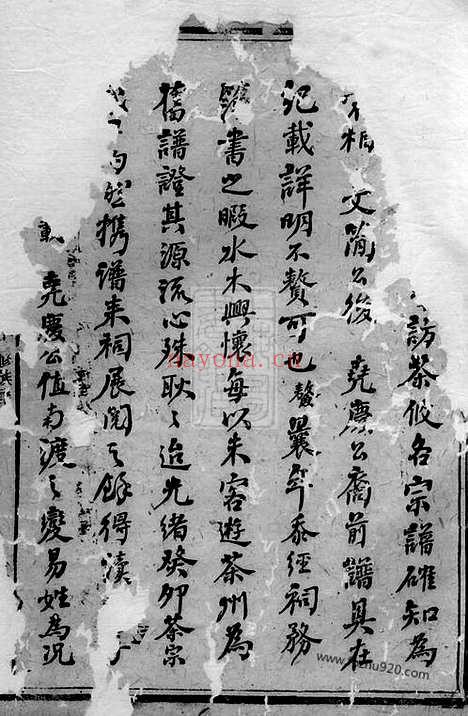 訪茶攸名宗譜確知為
相 文簡公後 堯廣公裔前譜具在
記載詳明不贅可也鰲曩年忝經祠務
書之暇水木興懷每以未客遊茶州為
舊譜證其源流心殊耿〻迨光緒癸卯茶宗
攜譜來祠展閱之餘得瀆
堯廣公值南渡之變易姓為況
nayona.cn
www.shu920.com